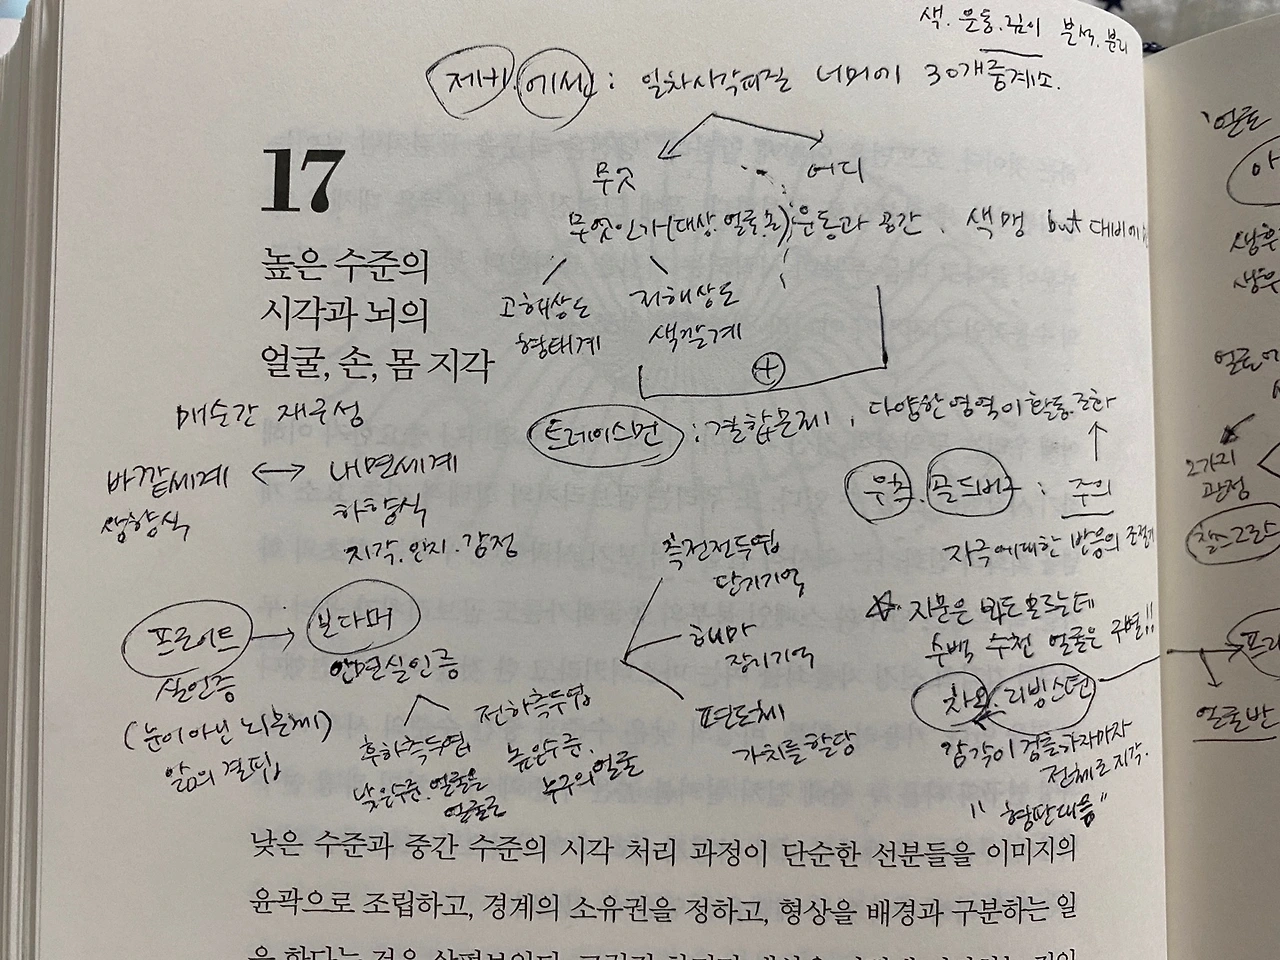 색. 운동. 깊이 분석. 분리
제키. 에센 : 일차시각피질 너머에 30개중계소.
무엇 어디
무엇인가(대상. 얼굴. 손) 운동과 공간. 색맹 but 대비에
고해상도 저해상도
형태계 색깔계
17
높은 수준의
시각과 뇌의
얼굴, 손, 몸 지각
매순간 재구성
트레이스먼 : 결합문제, 다양한 영역이 활동. 조화
바깥세계 ↔ 내면세계
상향식 하향식
지각. 인지. 감정
우츠. 골드버그 : 주의
자극에대한 반응의 조절
측전전두엽
단기기억
해마
장기기억
편도체
가치를 할당
프로이트 → 보다머
실인증 안면실인증
(눈이 아닌 뇌문제)
앎의 결핍
후하측두엽
낮은수준. 얼굴은
얼굴로
전하측두엽
높은수준.
누구의 얼굴
☆ 지문은 봐도모르는데
수백 수천 얼굴은 구별!!
차오. 리빙스턴
감각이 검출가자마자
전체로 지각.
"형판대응"
낮은 수준과 중간 수준의 시각 처리 과정이 단순한 선분들을 이미지의
윤곽으로 조립하고, 경계의 소유권을 정하고, 형상을 배경과 구분하는 일
'얼굴
생후
생후
얼굴에
2가지
관점
찰스그로스
얼굴반